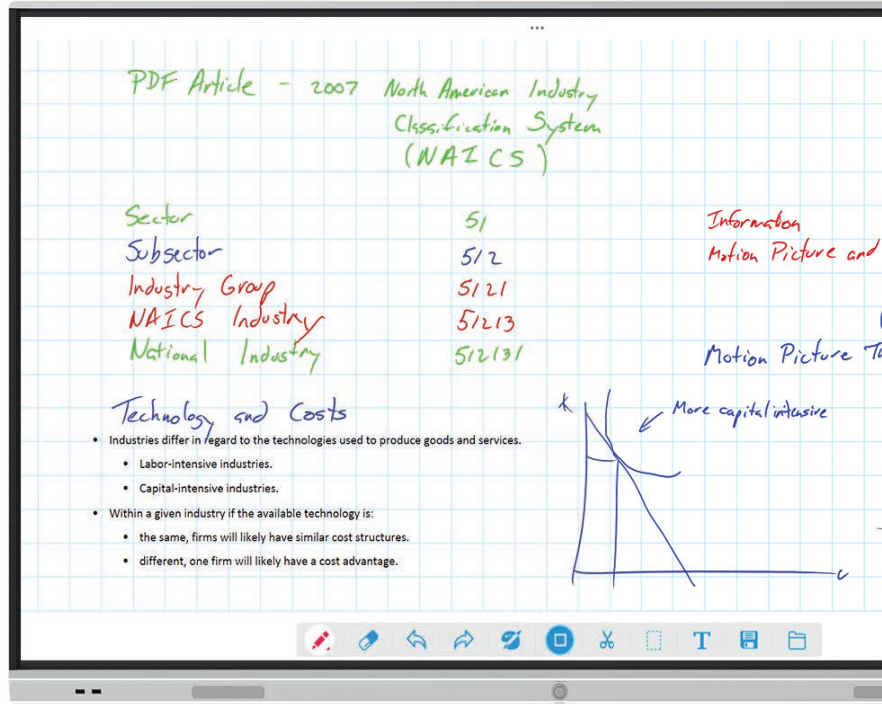 PDF Article - 2007 North American Industry
Classification System
(NAICS)
Sector 51 Information
Subsector 512 Motion Picture and
Industry Group 5121
NAICS Industry 51213
National Industry 512131 Motion Picture
Technology and Costs
• Industries differ in regard to the technologies used to produce goods and services.
• Labor-intensive industries.
• Capital-intensive industries.
• Within a given industry if the available technology is:
• the same, firms will likely have similar cost structures.
• different, one firm will likely have a cost advantage.
K
More capital intensive
T